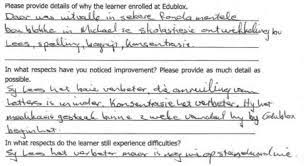 Please provide details of why the learner enrolled at Edublox.
Daar was uitvalle in sekere fondamentele
boublokke in Michael se skolastiese ontwikkeling bv
Lees, spelling, begrip, konsentrasie.
In what respects have you noticed improvement? Please provide as much detail as
possible.
Sy Lees het baie verbeter die omruiling van
Letters is minder. Konsentrasie het verbeter. Hy het
binne 2 weke vandat hy by Edublox
begin het.
In what respects do the learner still experience difficulties?
Sy Lees het verbeter maar is nog nie op standaard nie